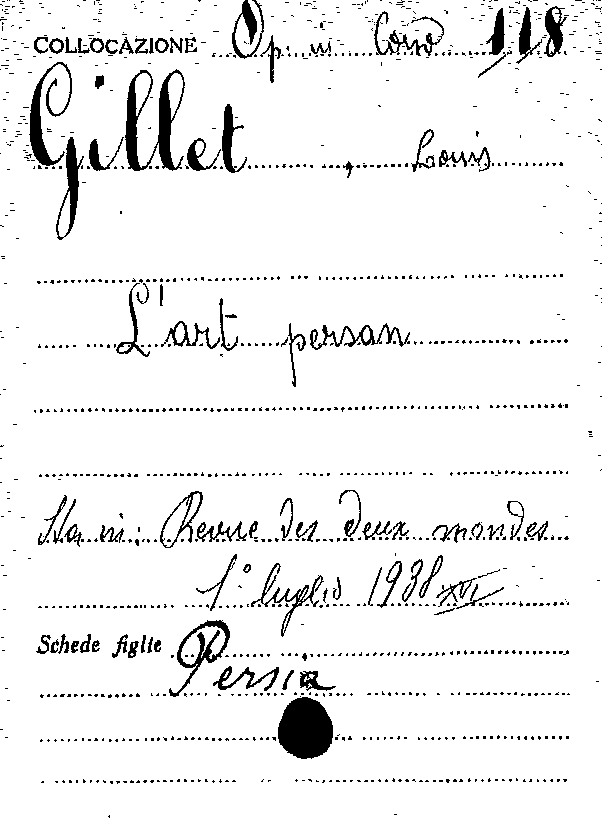 COLLOCAZIONE Op. in Corso 118
Gillet, Louis
L'art persan
Sta in: Revue des deux mondes
1° luglio 1938 XVI
Schede figlie
Persia